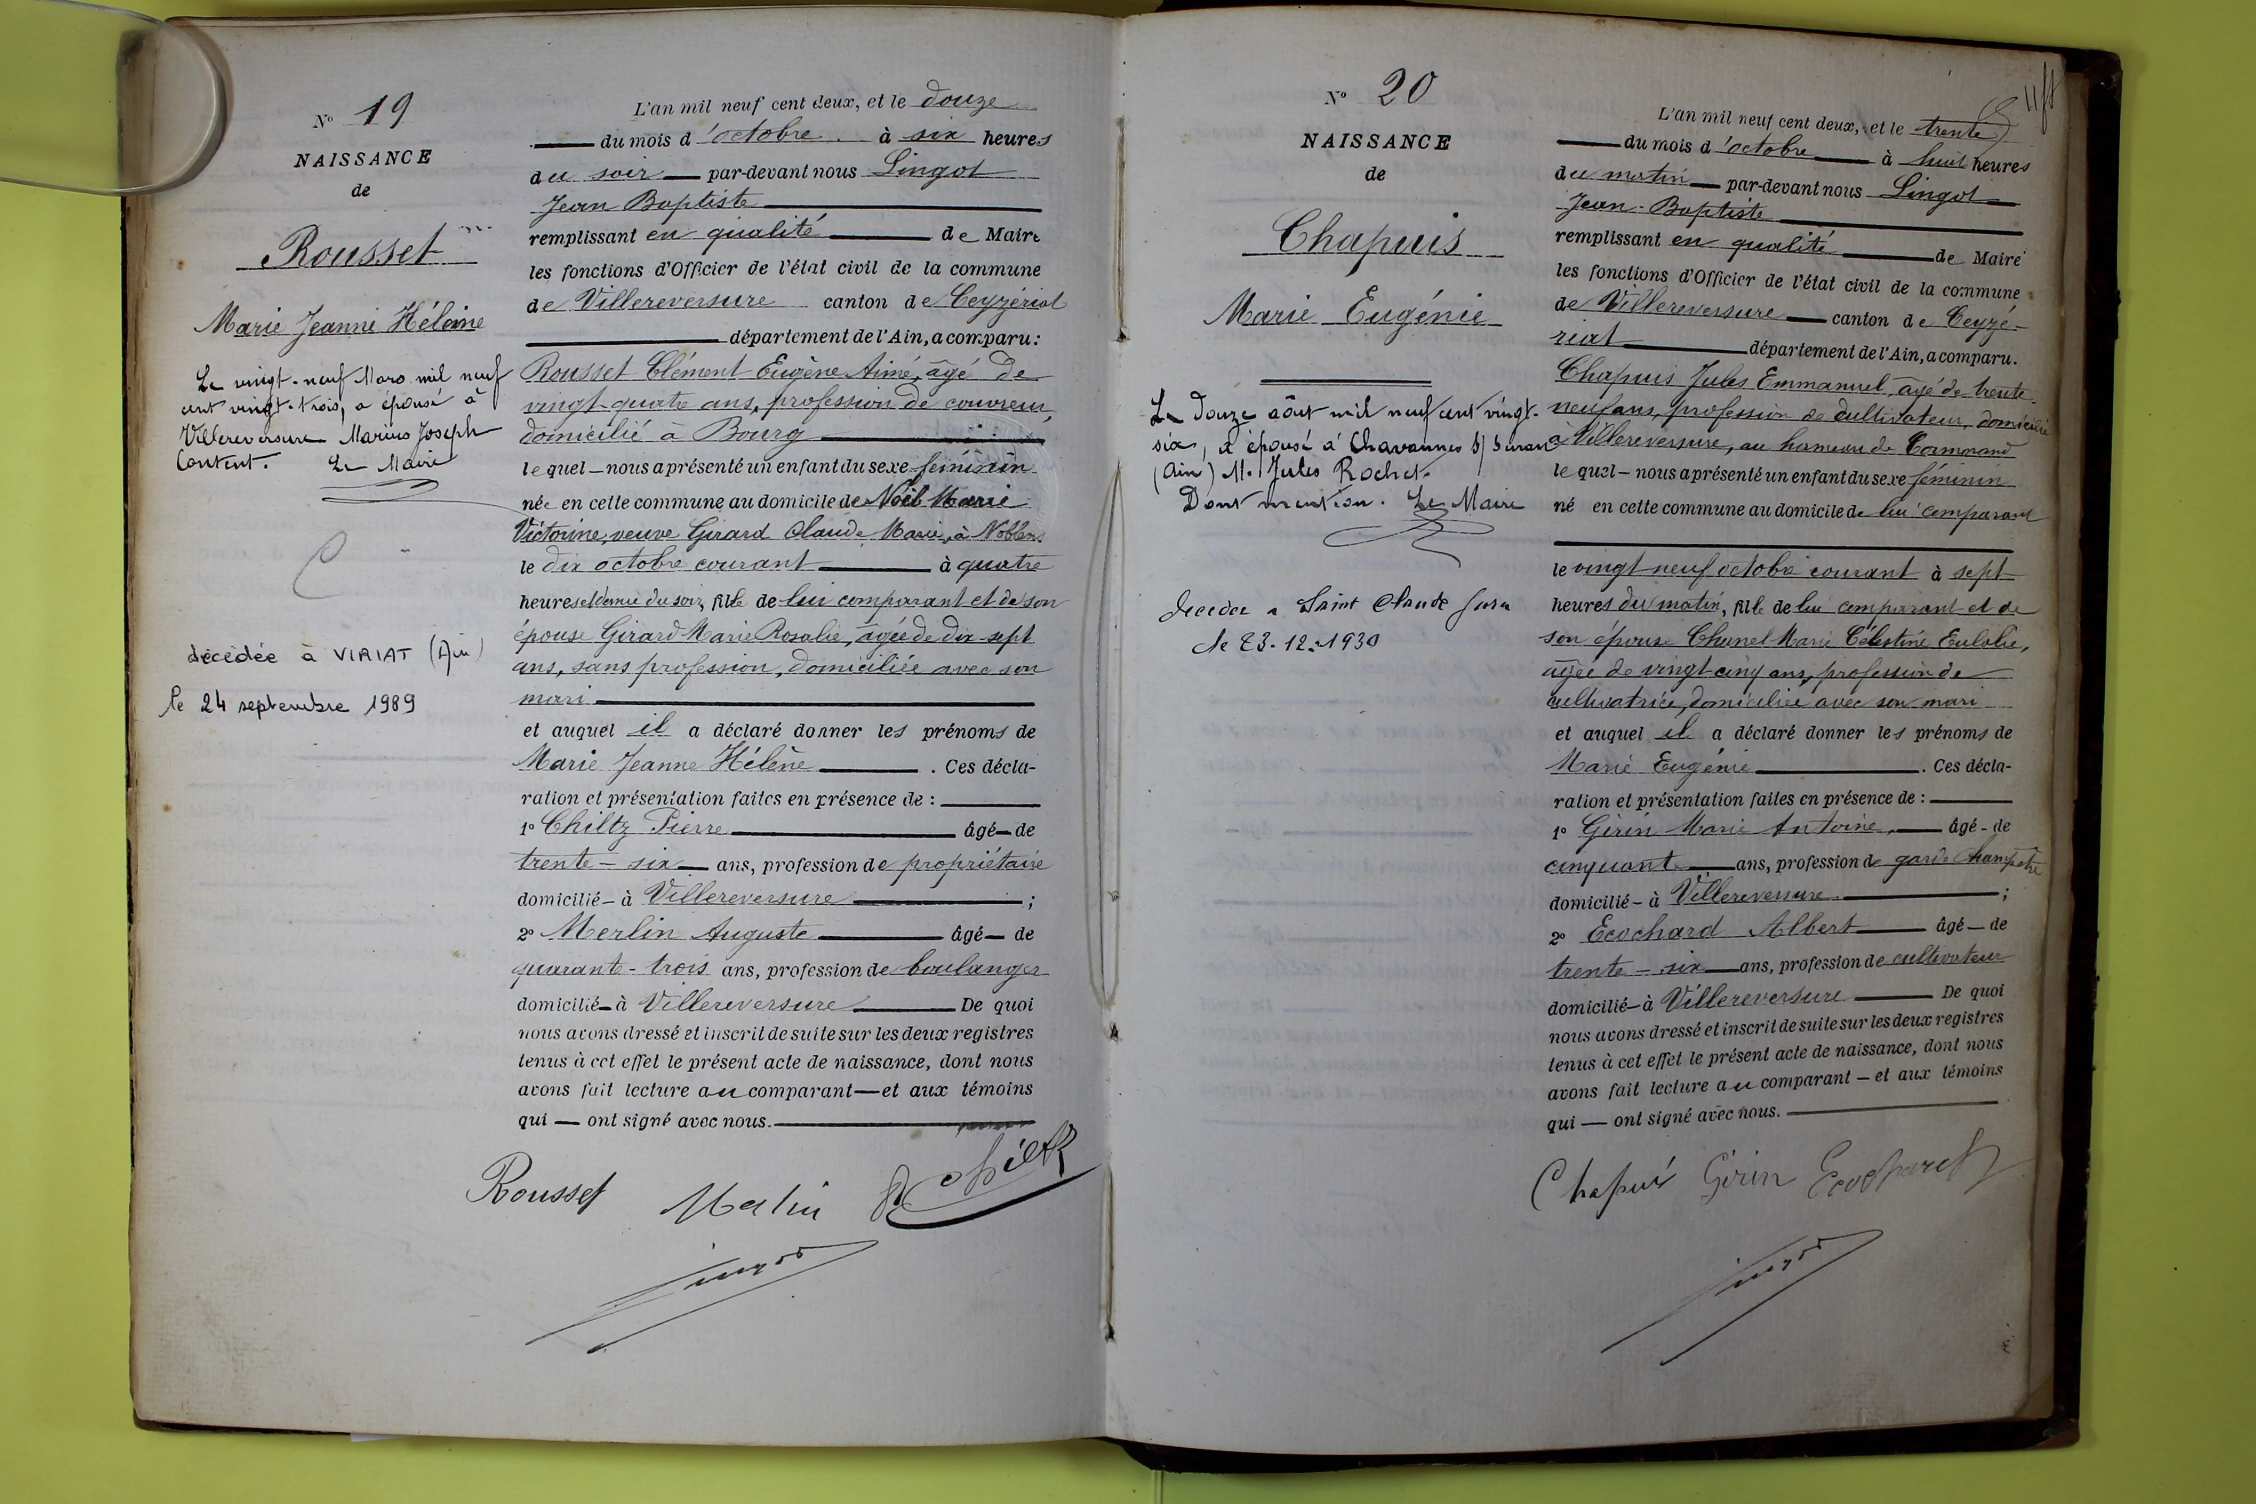 N° 19
NAISSANCE
de
Rousset
Marie Jeanne Hélène
Le vingt-neuf Mars mil neuf
cent vingt-trois, a épousé à
Villereversure Marius Joseph
Content. Le Maire
décédée à VIRIAT (Ain)
le 24 septembre 1989
L'an mil neuf cent deux, et le douze
du mois d'octobre à six heures
du soir par-devant nous Lingot
Jean Baptiste
remplissant en qualité de Maire
les fonctions d'Officier de l'état civil de la commune
de Villereversure canton de Ceyzériat
département de l'Ain, a comparu:
Rousset Clément Eugène Aimé, âgé de
vingt-quatre ans, profession de couvreur,
domicilié à Bourg
lequel nous a présenté un enfant du sexe féminin
née en cette commune au domicile de Noël Marie
Victorine, veuve Girard Claude Marie, à Noblens
le dix octobre courant à quatre
heures et demie du soir, fille de lui comparant et de son
épouse Girard Marie Rosalie, âgée de dix-sept
ans, sans profession, domiciliée avec son
mari
et auquel il a déclaré donner les prénoms de
Marie Jeanne Hélène. Ces décla-
ration et présentation faites en présence de :
1° Chiltz Pierre âgé de
trente-six ans, profession de propriétaire
domicilié à Villereversure ;
2° Merlin Auguste âgé de
quarante-trois ans, profession de boulanger
domicilié à Villereversure De quoi
nous avons dressé et inscrit de suite sur les deux registres
tenus à cet effet le présent acte de naissance, dont nous
avons fait lecture au comparant et aux témoins
qui ont signé avec nous.
Rousset Merlin P. Chiltz
Lingot
N° 20
NAISSANCE
de
Chapuis
Marie Eugénie
Le douze août mil neuf cent vingt-
six, a épousé à Chavannes s/ Suran
(Ain) M. Jules Rochet.
Dont mention. Le Maire
décédée à Saint Claude Jura
le 23.12.1930
L'an mil neuf cent deux, et le trente
du mois d'octobre à huit heures
du matin par-devant nous Lingot
Jean-Baptiste
remplissant en qualité de Maire
les fonctions d'Officier de l'état civil de la commune
de Villereversure canton de Ceyzé-
riat département de l'Ain, a comparu.
Chapuis Jules Emmanuel, âgé de trente-
neuf ans, profession de cultivateur, domicilié
à Villereversure, au hameau de Cormorand
lequel nous a présenté un enfant du sexe féminin
né en cette commune au domicile de lui comparant
le vingt-neuf octobre courant à sept
heures du matin, fille de lui comparant et de
son épouse Chanel Marie Célestine Eulalie,
âgée de vingt cinq ans, profession de
cultivatrice, domiciliée avec son mari
et auquel il a déclaré donner les prénoms de
Marie Eugénie. Ces décla-
ration et présentation faites en présence de :
1° Girin Marie Antoine, âgé de
cinquante ans, profession de garde champêtre
domicilié à Villereversure ;
2° Ecochard Albert âgé de
trente-six ans, profession de cultivateur
domicilié à Villereversure De quoi
nous avons dressé et inscrit de suite sur les deux registres
tenus à cet effet le présent acte de naissance, dont nous
avons fait lecture au comparant et aux témoins
qui ont signé avec nous.
Chapuis Girin Ecochard
Lingot